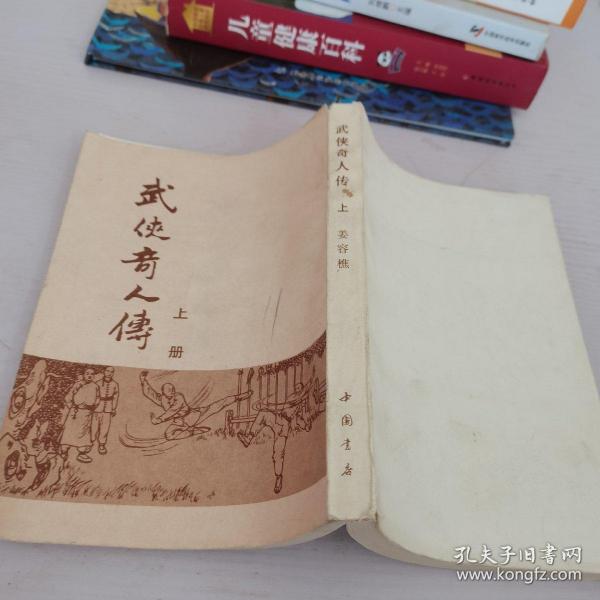 儿童健康百科
武侠奇人传 上 姜容樵
中国书店
武俠奇人傳
上册
孔夫子旧书网
www.kongfz.com